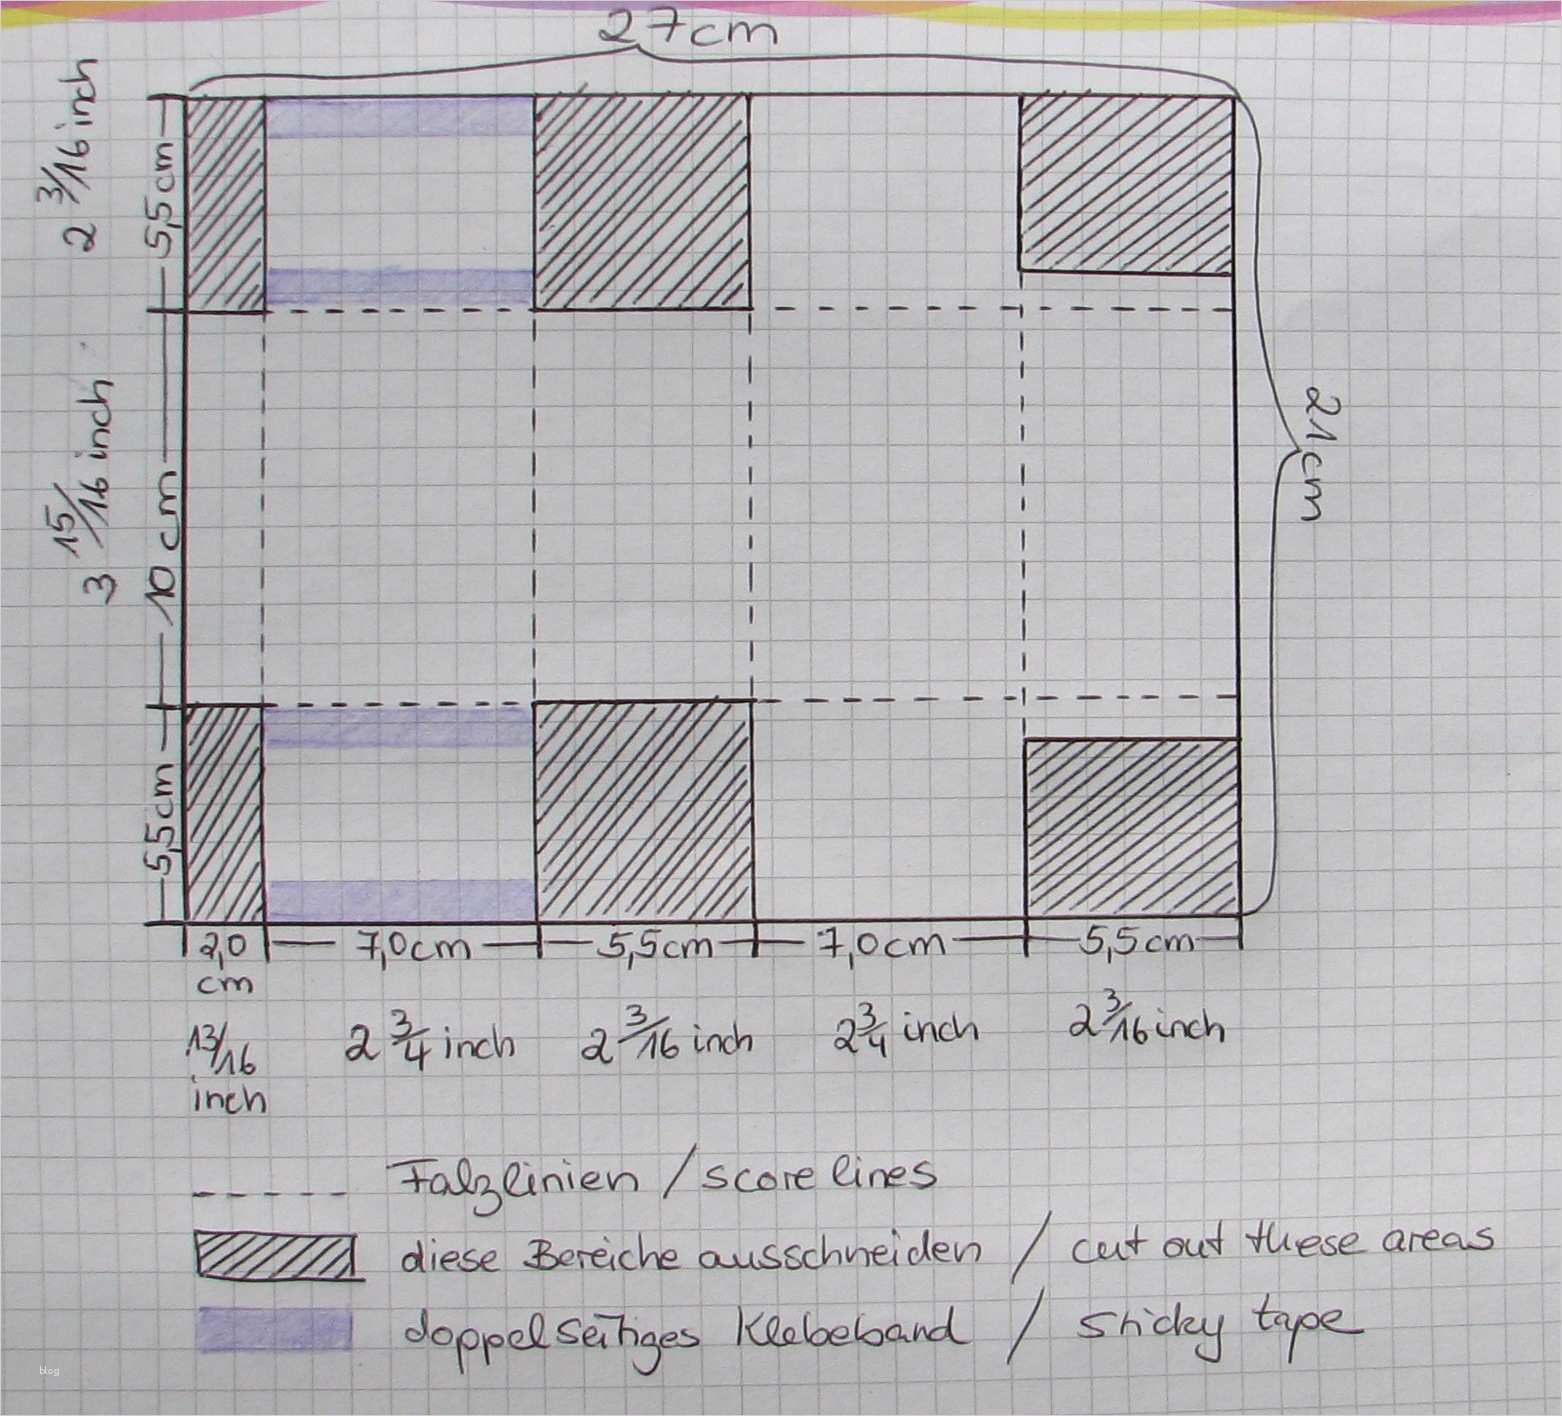 27cm
2 3/16 inch
5,5cm
21cm
3 15/16 inch
10 cm
5,5cm
2,0 cm
7,0cm
5,5cm
7,0cm
5,5cm
13/16 inch
2 3/4 inch
2 3/16 inch
2 3/4 inch
2 3/16 inch
Falzlinien / score lines
diese Bereiche ausschneiden / cut out these areas
doppelseitiges Klebeband / sticky tape
blog